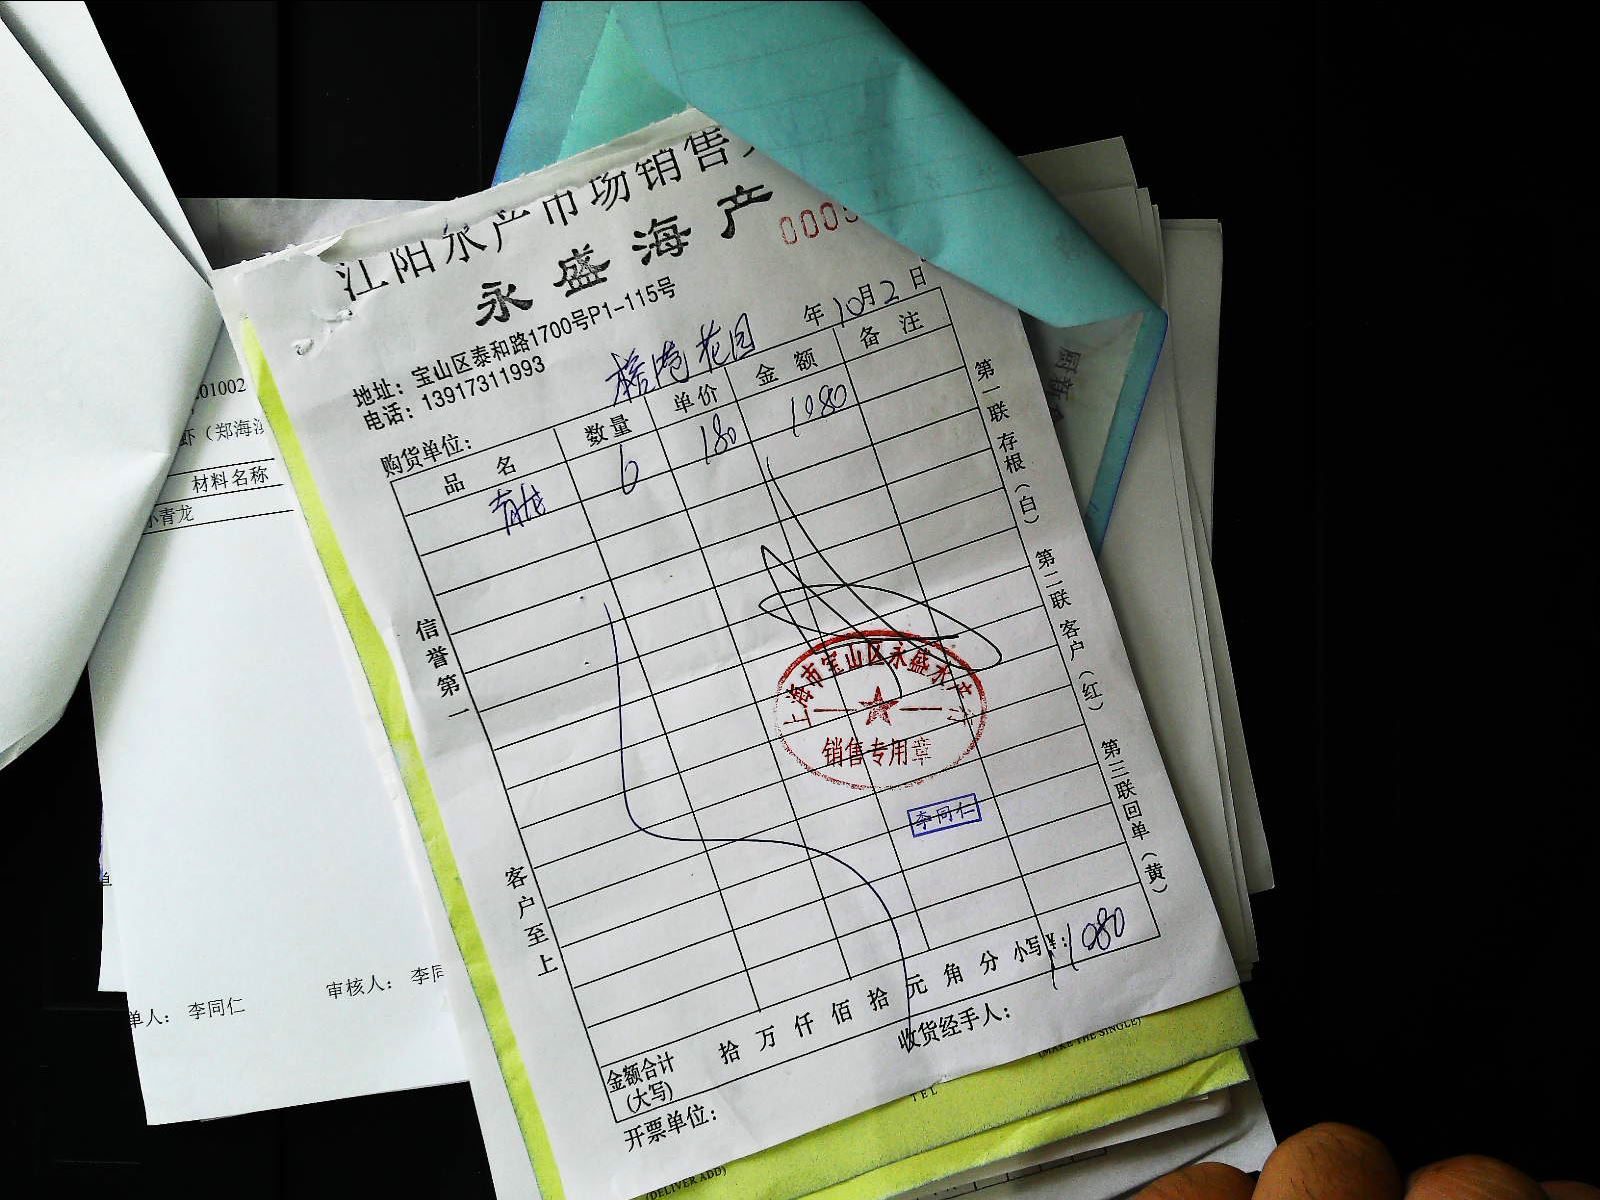 江阳水产市场销售
永盛海产
0005
地址：宝山区泰和路1700号P1-115号
电话：13917311993
年10月2日
购货单位：
花园
品名 数量 单价 金额 备注
青龙 6 180 1080
信誉第一
客户至上
第一联存根（白） 第二联客户（红） 第三联回单（黄）
上海市宝山区永盛水产行
销售专用章
李同仁
金额合计
(大写)
拾 万 仟 佰 拾 元 角 分 小写¥：1080
开票单位：
收货经手人：
01002
虾（郑海滨
材料名称
小青龙
单
单人： 李同仁
审核人： 李同
(MAKE THE SINGLE)
TEL
(DELIVER ADD)